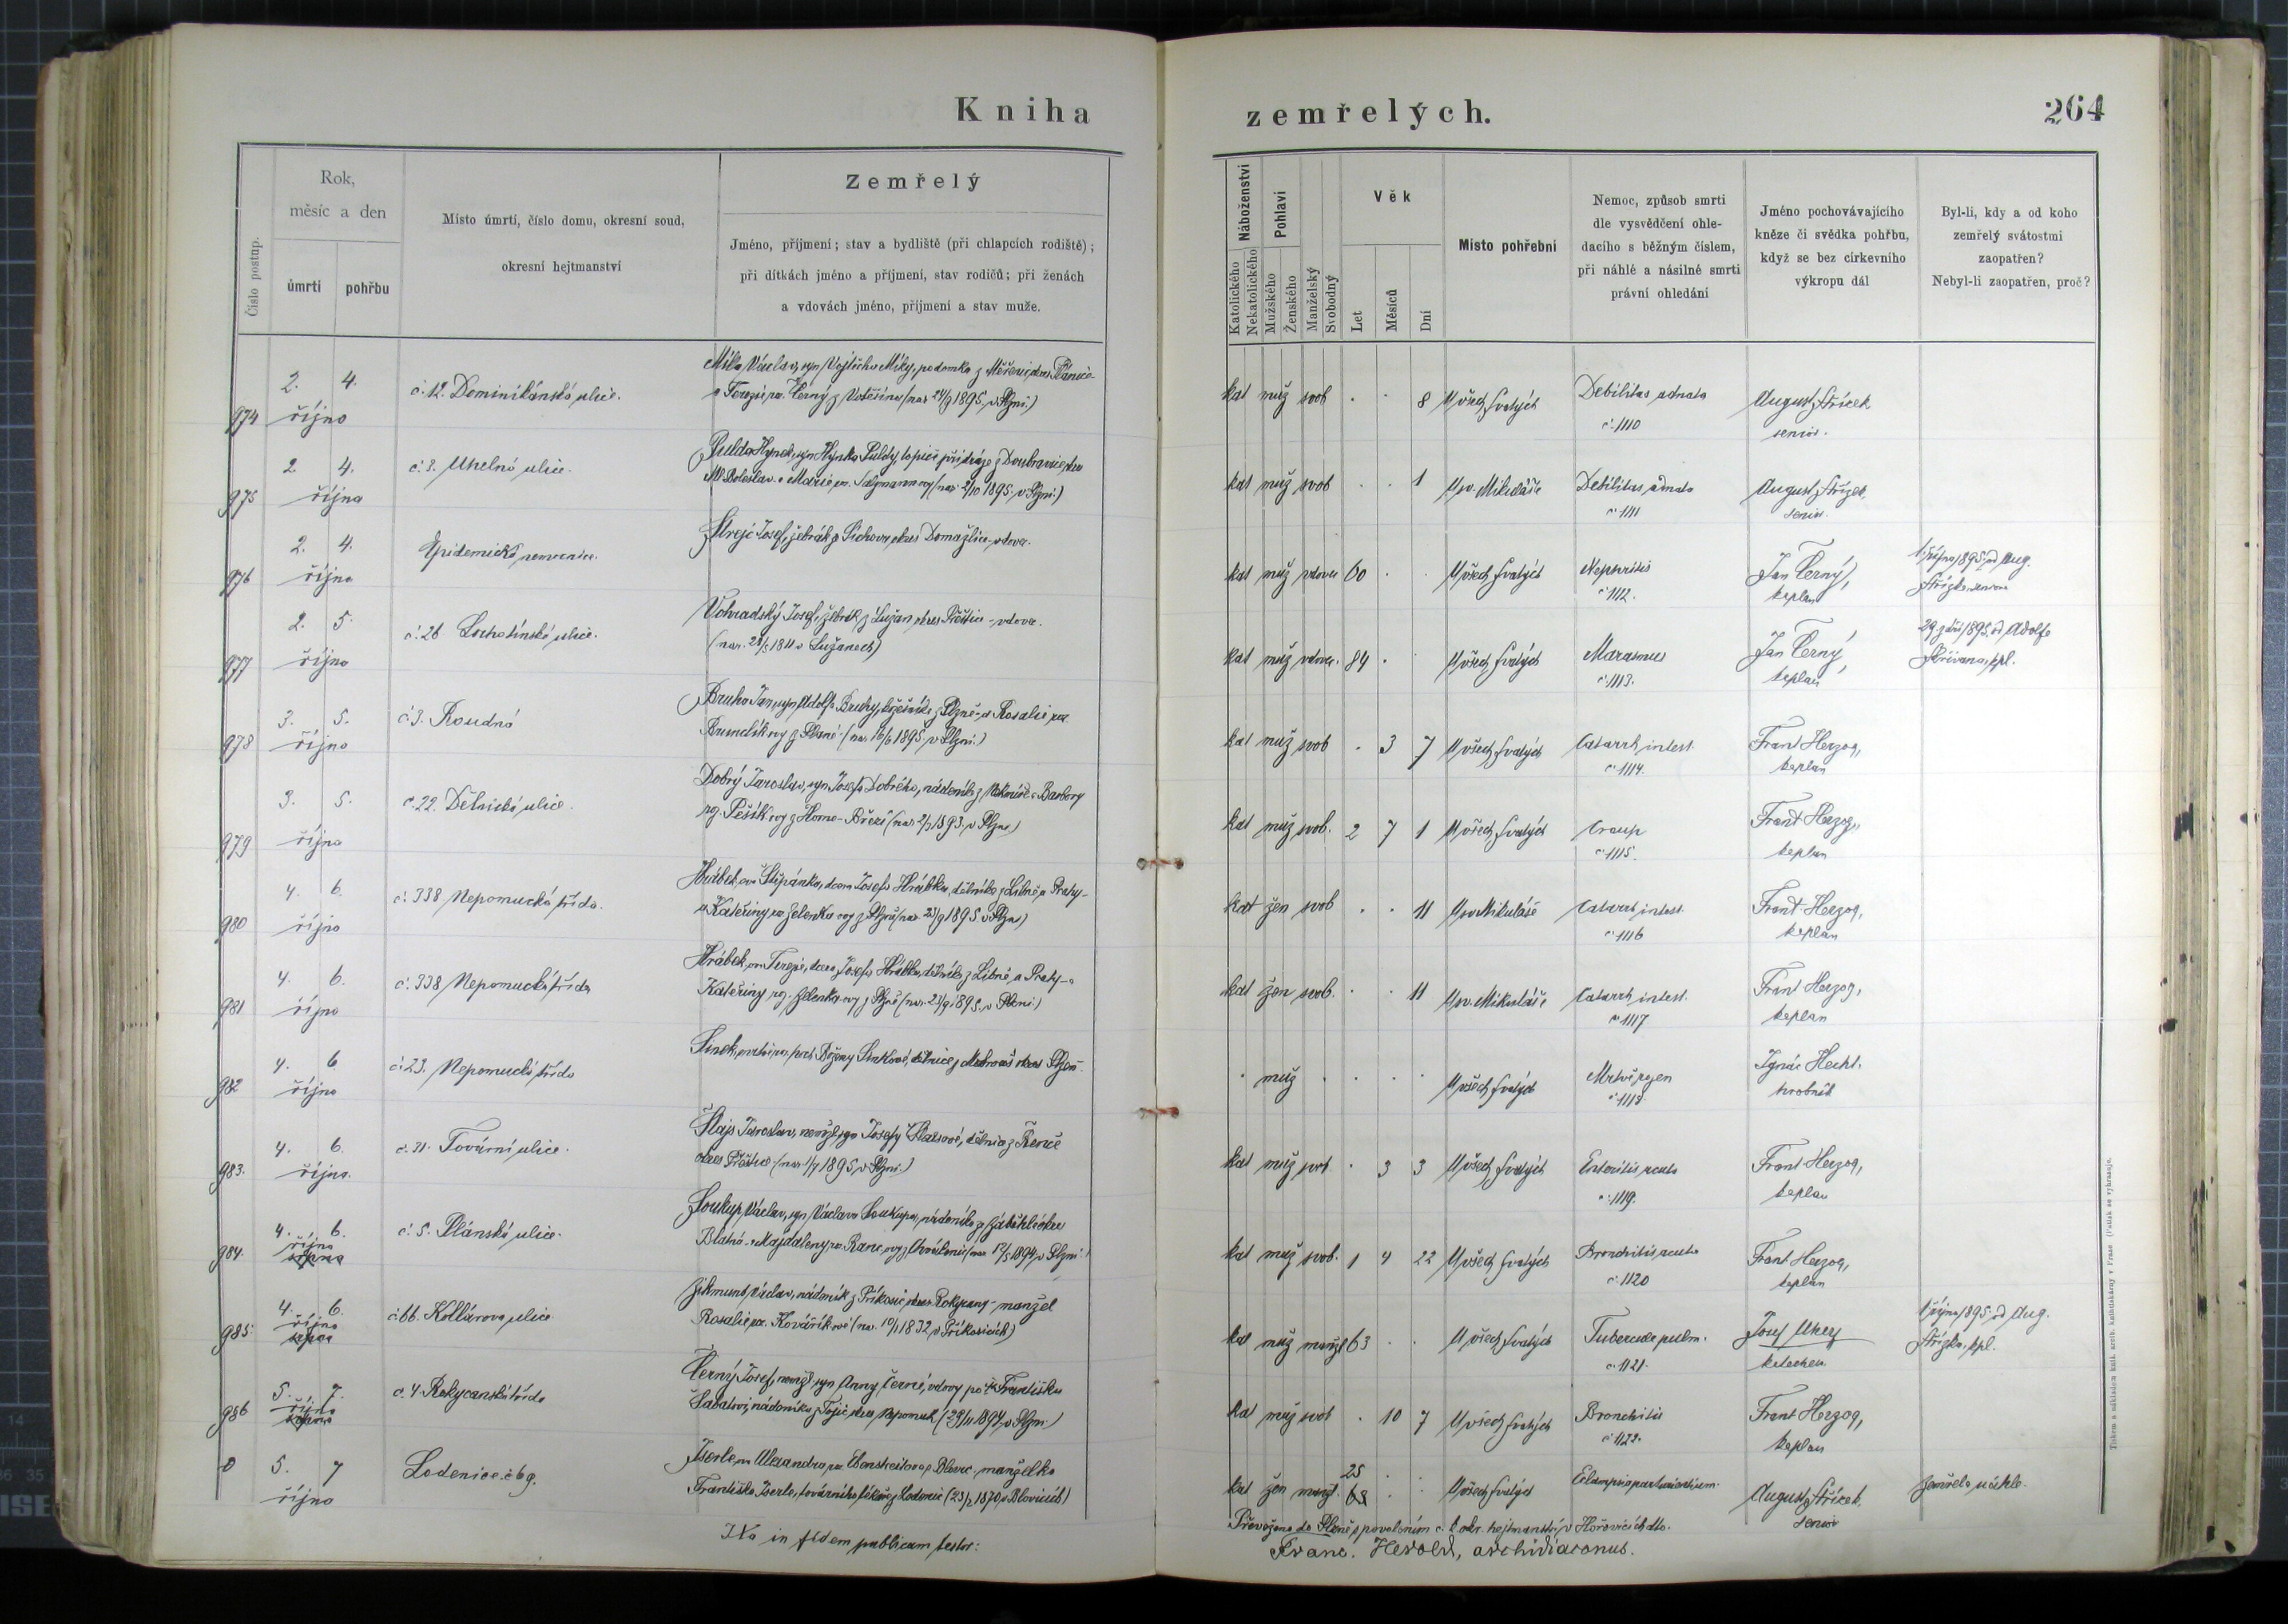 Kniha zemřelých.
264
Číslo postup.
Rok,
měsíc a den
úmrtí
pohřbu
Místo úmrtí, číslo domu, okresní soud,
okresní hejtmanství
Zemřelý
Jméno, příjmení; stav a bydliště (při chlapcích rodiště);
při dítkách jméno a příjmení, stav rodičů; při ženách
a vdovách jméno, příjmení a stav muže.
Náboženství
Katolického
Nekatolického
Pohlaví
Mužského
Ženského
Manželský
Svobodný
Věk
Let
Měsíců
Dní
Místo pohřební
Nemoc, způsob smrti
dle vysvědčení ohle-
dacího s běžným číslem,
při náhlé a násilné smrti
právní ohledání
Jméno pochovávajícího
kněze či svědka pohřbu,
když se bez církevního
výkropu dál
Byl-li, kdy a od koho
zemřelý svátostmi
zaopatřen?
Nebyl-li zaopatřen, proč?
974 2. 4. října č. 12. Dominikánská ulice.
Míka Václav, syn Vojtěcha Míky, podomka z
a Terezie roz. Černý z (nar. 24/9 1895 v Plzni.)
kat muž svob . . 8 U všech svatých Debilitas adnata č. 1110 August Střízek senior.
975 2 4. října č. 3. Uhelná ulice.
Pulda Hynek, syn Hynka Puldy, topiče při dráze z Doubravice, okres
Ml. Boleslav. a Marie roz. (nar. 2/10 1895 v Plzni.)
kat muž svob . . 1 U sv. Mikuláše Debilitas adnata č. 1111 August Střízek, senior.
976 2. 4. října Epidemická nemocnice.
Strejc Josef, žebrák z Lichova, okres Domažlice, vdovec.
kat muž vdovec 60 . . U všech svatých Nephritis č. 1112. Jan Černý, kaplan
1. října 1895 od Aug. Střízka, seniora
977 2. 5. října č. 26 Lochotínská ulice.
Vohradský Josef, žebrák z Lužan, okres Přeštice - vdovec.
(nar. 28/5 1811 v Lužanech)
kat muž vdovec. 84 . U všech svatých Marasmus č. 1113. Jan Černý, kaplan
29. září 1895. od Adolfa Křivana, kpl.
978 3. 5. října č. 3. Roudná
Bruha Jan, syn Adolfa Bruhy, z Plzně - a Rosalie roz.
(nar. 16/6 1895 v Plzni.)
kat muž svob . 3 7 U všech svatých Catarrh. intest. č. 1114. Frant Herzog, kaplan
979 3. 5. října č. 22. Dělnická ulice.
Dobrý Jaroslav, syn Josefa Dobrého, nádeníka z a Barbory
roz. Pešík z (nar. 2/3 1893. v Plzni)
kat muž svob. 2 7 1 U všech svatých Croup č. 1115. Frant Herzog, kaplan
980 4. 6. října č. 338 Nepomucká třída.
Hrábek, Štěpánka, dcera Josefa Hrábka, dělníka z Libně u Prahy -
a Kateřiny roz. Zelenka z Plzně (nar. 23/9 1895 v Plzni)
kat žen svob . . 11 U sv Mikuláše Catarrh intest. č. 1116 Frant Herzog, kaplan
981 4. 6. října č. 338 Nepomucká třída
Hrábek, Terezie, dcera Josefa Hrábka, dělníka z Libně u Prahy - a
Kateřiny roz. Zelenka z Plzně (nar. 23/9 1895 v Plzni)
kat žen svob. . . 11 U sv. Mikuláše Catarrh intest. č. 1117 Frant Herzog, kaplan
982 4. 6 října č. 23. Nepomucká třída
Sinek, Boženy Sinkové, dělnice z okres Plzeň.
. muž . . . . U všech svatých Mrtvě rozen č. 1118. Ignác Hecht. hrobník
983. 4. 6. října. č. 21. Tovární ulice.
Šlajs Jaroslav, nemanž. syn Josefy Šlaisové, dělnice z Řenče
okres Přeštice (nar. 1/7 1895, v Plzni.)
kat muž svob. . 3 3 U všech svatých Enteritis acuta č. 1119. Frant Herzog, kaplan
984. 4. 6. října č. 5. Plánská ulice.
Soukup Václav, syn Václava Soukupa, nádeníka z
Blatná - a Majdaleny roz. (nar. 12/5 1894, v Plzni.)
kat muž svob. 1 4 22 U všech svatých Bronchitis acuta č. 1120 Frant Herzog, kaplan
985. 4. 6. října č. 66. Kollárova ulice
Zikmund Václav, nádeník z Příkosic okres Rokycany - manžel
Rosalie roz. Kovaříkové (nar. 10/1 1832 v Příkosicích)
kat muž manžel 63 . . U všech svatých Tubercule pulm. č. 1121. Josef katechet.
1. října 1895. od Aug. Střízka, kpl.
986 5. 7. října č. 4. Rokycanská třída
Černý Josef, nemž. syn Anny Černé, vdovy po Františku
nádeníka z okres Nepomuk. (28/11 1894, v Plzni)
kat muž svob . 10 7 U všech svatých Bronchitis č. 1122. Frant Herzog, kaplan
0 5. 7 října Lodenice. č. 69.
Iserle, Alexandra roz. z Blovic, manželka
Františka Iserle, továrního z Lodenic (23/2 1870, v Blovicích)
kat žen manž. 25 . . U všech svatých Eclampsia parturientium. August Střízek, senior
Zemřela náhle.
Převežena do Plzně s povolením c. k. okr. hejtmanství v Hořovicích dto.
Ita in fidem publicam testor:
Franc. Herold, archidiaconus.